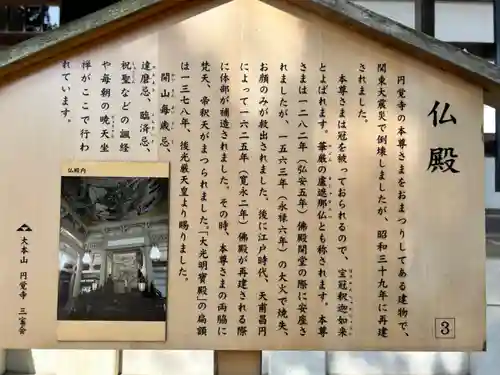 仏殿
円覚寺の本尊さまをおまつりしてある建物で、
関東大震災で倒壊しましたが、昭和三十九年に再建
されました。
本尊さまは冠を被っておられるので、宝冠釈迦如来
とよばれます。華厳の盧遮那仏とも称されます。本尊
さまは一二八二年(弘安五年)佛殿開堂の際に安座さ
れましたが、一五六三年(永禄六年)の大火で焼失、
お顔のみが救出されました。後に江戸時代、天甫昌円
によって一六二五年(寛永二年)佛殿が再建される際
に体部が補造されました。その時、本尊さまの両脇に
梵天、帝釈天がまつられました。「大光明寶殿」の扁額
は一三七八年、後光厳天皇より賜りました。
開山毎歳忌、
達磨忌、臨済忌、
祝聖などの諷経
や毎朝の暁天坐
禅がここで行わ
れています。
仏殿内
大本山 円覚寺 三宝会
3